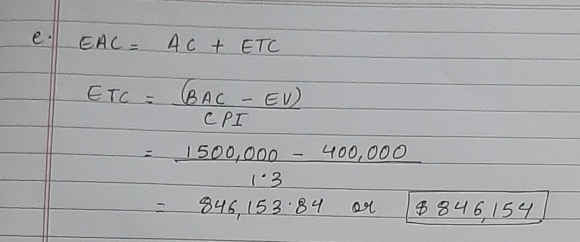 e. EAC = AC + ETC
ETC = (BAC - EV)
CPI
= 1500,000 - 400,000
1.3
= 846,153.84 or $846,154